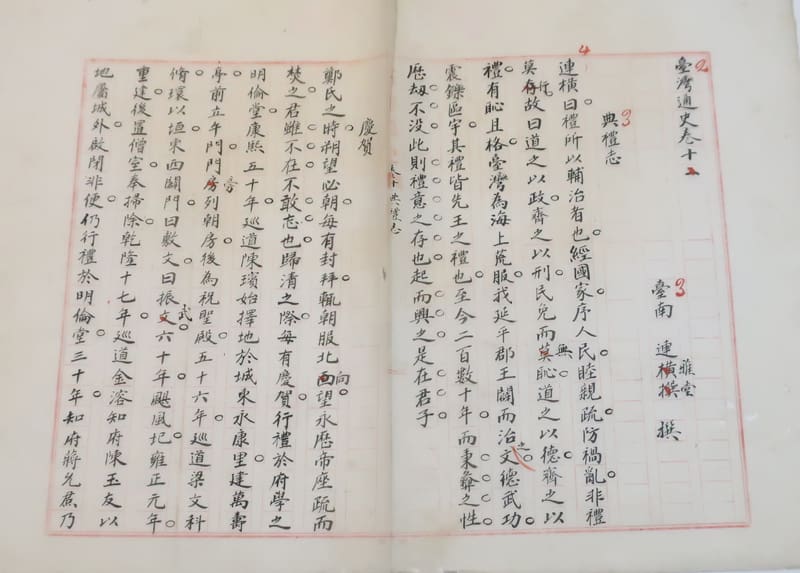 臺灣通史卷十
2
3
典禮志
3
臺南 連橫撰 撰
雅堂
4
連橫曰禮所以輔治者也經國家序人民睦親疏防禍亂非禮
莫存故曰道之以政齊之以刑民免而莫恥道之以德齊之以
行
無
禮有恥且格臺灣為海上荒服我延平郡王闢而治文德武功
之
震鑠區宇其禮皆先王之禮也至今二百數十年而秉彝之性
歷劫不沒此則禮意之存也起而興之是在君子
卷十典禮志
慶賀
鄭氏之時朔望必朝每有封拜輒朝服北西望永歷帝座疏而
向
焚之君雖不在不敢忘也歸清之際每有慶賀行禮於府學之
明倫堂康熙五十年巡道陳璸始擇地於城東永康里建萬壽
亭前立午門門房列朝房後為祝聖殿五十六年巡道梁文科
旁
脩環以垣東西闢門曰敷文曰振文六十年颶風圮雍正元年
武
重建後置僧室奉掃除乾隆十七年巡道金溶知府陳玉友以
地屬城外啟閉非便仍行禮於明倫堂三十年知府蔣允焄乃